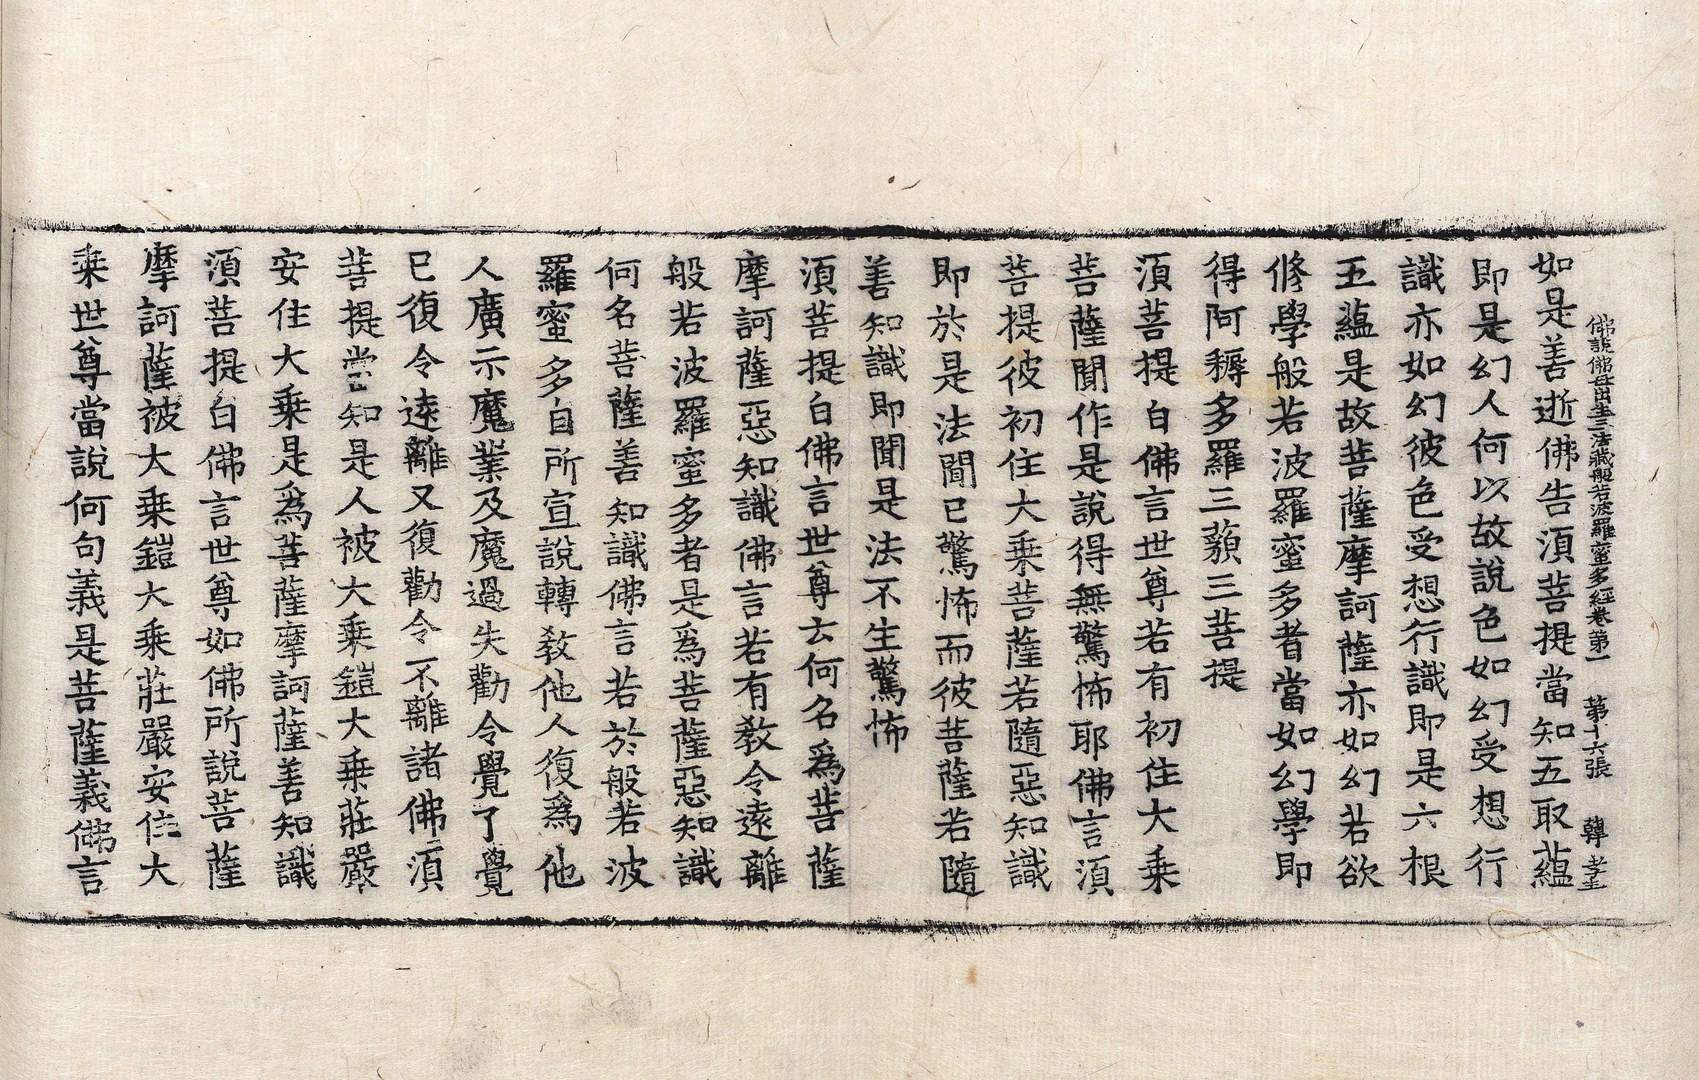 佛說佛母出生三法藏般若波羅蜜多經卷第一 第十六張 韓孝圭
如是善逝佛告湏菩提當知五取蘊
即是幻人何以故說色如幻受想行
識亦如幻彼色受想行識即是六根
五蘊是故菩薩摩訶薩亦如幻若欲
修學般若波羅蜜多者當如幻學即
得阿耨多羅三藐三菩提
湏菩提白佛言世尊若有初住大乘
菩薩聞作是說得無驚怖耶佛言湏
菩提彼初住大乘菩薩若隨惡知識
即於是法聞已驚怖而彼菩薩若隨
善知識即聞是法不生驚怖
湏菩提白佛言世尊云何名爲菩薩
摩訶薩惡知識佛言若有教令遠離
般若波羅蜜多者是爲菩薩惡知識
何名菩薩善知識佛言若於般若波
羅蜜多自所宣說轉教他人復爲他
人廣示魔業及魔過失勸令覺了覺
已復令遠離又復勸令不離諸佛湏
菩提當知是人被大乘鎧大乘莊嚴
安住大乘是爲菩薩摩訶薩善知識
湏菩提白佛言世尊如佛所說菩薩
摩訶薩被大乘鎧大乘莊嚴安住大
乘世尊當說何句義是菩薩義佛言